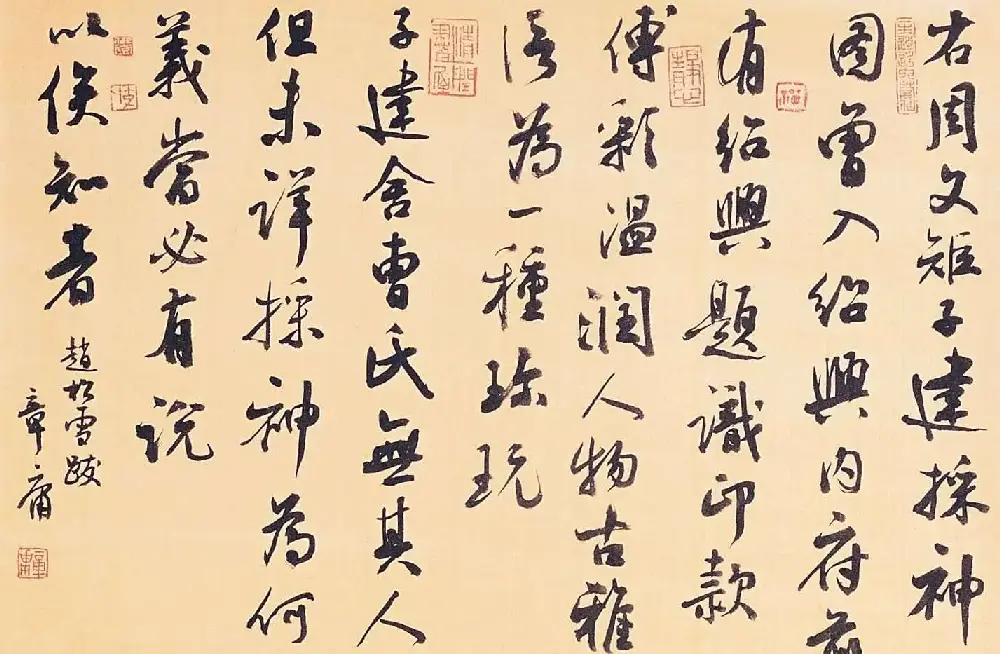 右周文矩子建採神
圖曾入紹興内府前
有紹興題識印款
傅彩温潤人物古雅
為一種珎玩
子建舍曹氏無其人
但未詳採神為何
義當必有説
以俟知者
趙松雪跋
章庸